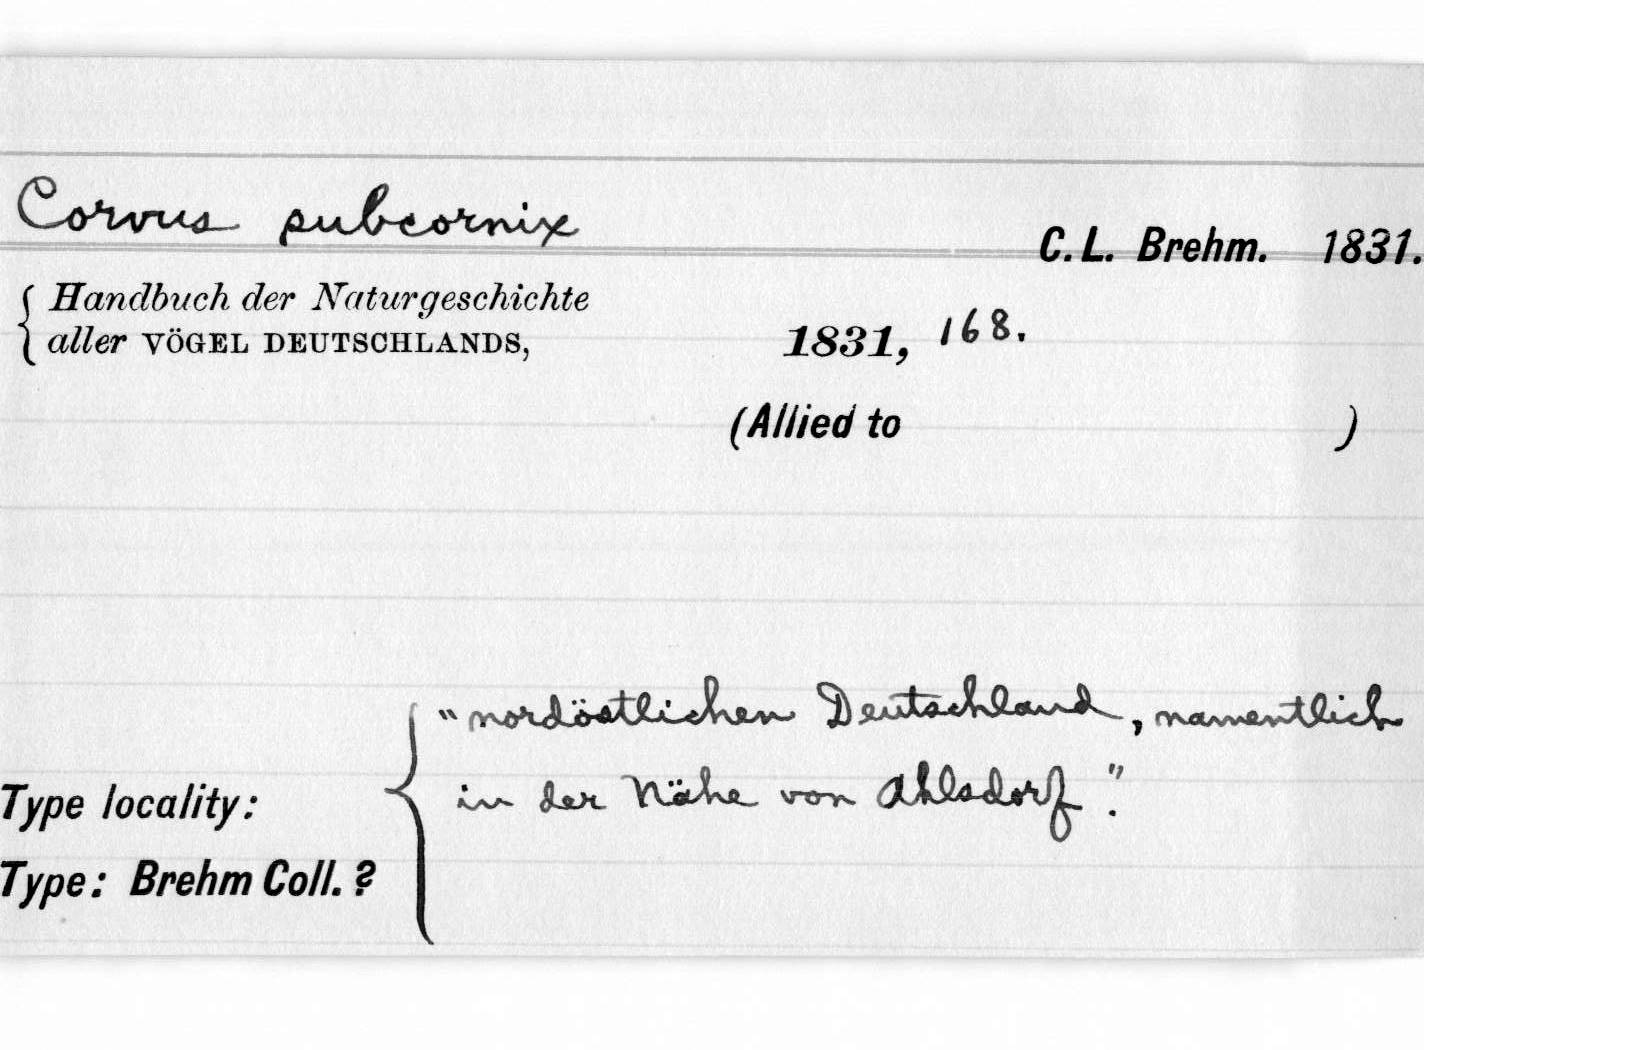 Corvus subcornix
C. L. Brehm. 1831.
Handbuch der Naturgeschichte
aller VÖGEL DEUTSCHLANDS,
1831, 168.
(Allied to )
"nordöstlichen Deutschland, namentlich
in der Nähe von Ahlsdorf".
Type locality:
Type: Brehm Coll. ?